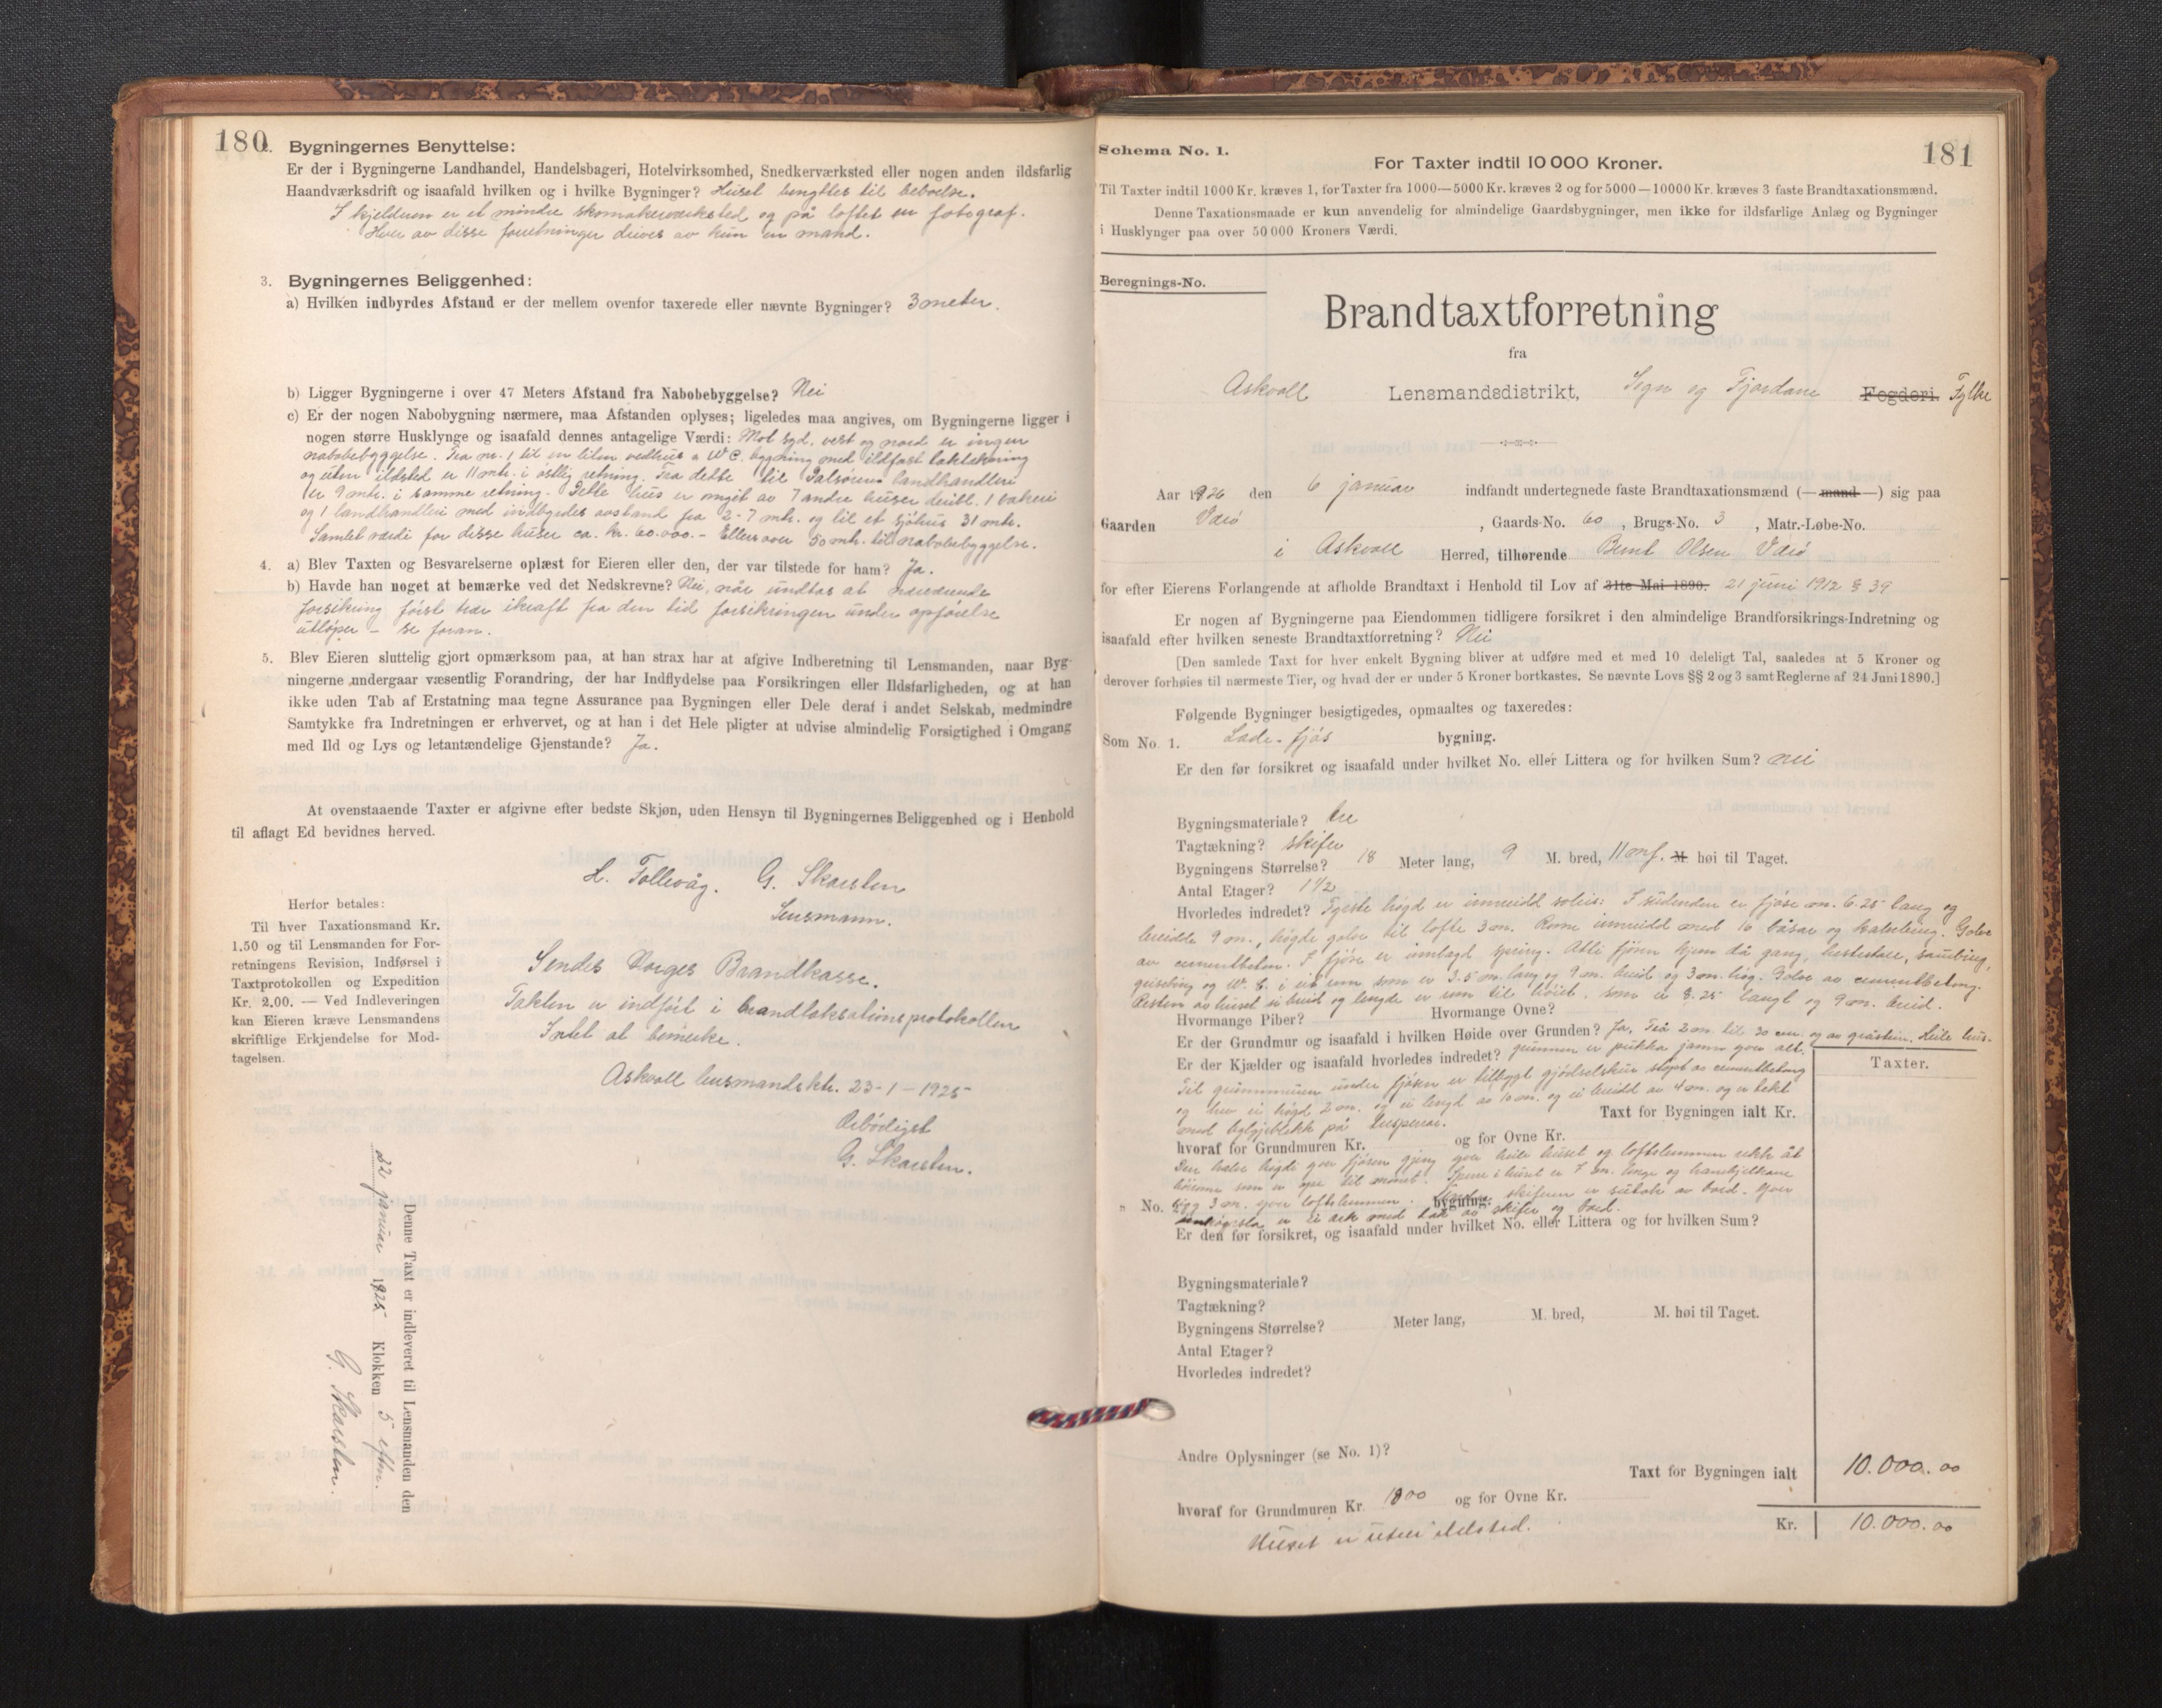 180
2. Bygningernes Benyttelse:
Er der i Bygningerne Landhandel, Handelsbageri, Hotelvirksomhed, Snedkerværksted eller nogen anden ildsfarlig
Haandværksdrift og isaafald hvilken og i hvilke Bygninger? Huset benyttes til beboelse.
I kjelderen er et mindre skomakerverksted og på loftet en fotograf.
Hver av disse forretninger drives av kun en mand.
3. Bygningernes Beliggenhed:
a) Hvilken indbyrdes Afstand er der mellem ovenfor taxerede eller nævnte Bygninger? 3 meter.
b) Ligger Bygningerne i over 47 Meters Afstand fra Nabobebyggelse? Nei
c) Er der nogen Nabobygning nærmere, maa Afstanden oplyses; ligeledes maa angives, om Bygningerne ligger i
nogen større Husklynge og isaafald dennes antagelige Værdi: Mot syd, vest og nord er ingen
nabobebyggelse. Fra nr. 1 til en liten vedhus a W.C. bygning med ildfast taktekning
og uten ildsted er 11 mtr. i østlig retning. Fra dette til Dalsørens landhandleri
er 9 mtr. i samme retning. Dette hus er omgit av 7 andre huser deribl. 1 bakeri
og 1 landhandleri med indbyrdes avstand fra 2-7 mtr. og til et sjøhus 31 mtr.
Samlet verdi for disse huser ca. kr. 60.000.- Ellers over 50 mtr. til nabobebyggelse.
4. a) Blev Taxten og Besvarelserne oplæst for Eieren eller den, der var tilstede for ham? Ja.
b) Havde han noget at bemærke ved det Nedskrevne? Nei, når undtas at nærværende
forsikring først trær ikraft fra den tid forsikringen under opførelse
utløper - se foran.
5. Blev Eieren sluttelig gjort opmærksom paa, at han strax har at afgive Indberetning til Lensmanden, naar Byg-
ningerne undergaar væsentlig Forandring, der har Indflydelse paa Forsikringen eller Ildsfarligheden, og at han
ikke uden Tab af Erstatning maa tegne Assurance paa Bygningen eller Dele deraf i andet Selskab, medmindre
Samtykke fra Indretningen er erhvervet, og at han i det Hele pligter at udvise almindelig Forsigtighed i Omgang
med Ild og Lys og letantændelige Gjenstande? Ja.
At ovenstaaende Taxter er afgivne efter bedste Skjøn, uden Hensyn til Bygningernes Beliggenhed og i Henhold
til aflagt Ed bevidnes herved.
H. Follevåg. G. Skarsten
Lensmann.
Herfor betales:
Til hver Taxationsmand Kr.
1.50 og til Lensmanden for For-
retningens Revision, Indførsel i
Taxtprotokollen og Expedition
Kr. 2,00. — Ved Indleveringen
kan Eieren kræve Lensmandens
skriftlige Erkjendelse for Mod-
tagelsen.
Sendes Norges Brandkasse.
Taksten er indført i brandtakstionsprotokollen
Intet at bemerke.
Askvoll lensmandsktr. 23-1-1925
Ærbødigst
G. Skarsten.
Denne Taxt er indleveret til Lensmanden den
22 januar 1925 Klokken 5 eftm.
G. Skarsten.
181
Schema No. 1.
For Taxter indtil 10 000 Kroner.
Til Taxter indtil 1000 Kr. kræves 1, for Taxter fra 1000—5000 Kr. kræves 2 og for 5000—10000 Kr. kræves 3 faste Brandtaxationsmænd.
Denne Taxationsmaade er kun anvendelig for almindelige Gaardsbygninger, men ikke for ildsfarlige Anlæg og Bygninger
i Husklynger paa over 50 000 Kroners Værdi.
Beregnings-No.
Brandtaxtforretning
fra
Askvoll Lensmandsdistrikt, Sogn og Fjordane Fogderi. Fylke
Aar 1926 den 6 januar indfandt undertegnede faste Brandtaxationsmænd (— mand —) sig paa
Gaarden Værø, Gaards-No. 60, Brugs-No. 3, Matr.-Løbe-No.
i Askvoll Herred, tilhørende Bernt Olsen Værø
for efter Eierens Forlangende at afholde Brandtaxt i Henhold til Lov af 31te Mai 1890. 21 juni 1912 § 39
Er nogen af Bygningerne paa Eiendommen tidligere forsikret i den almindelige Brandforsikrings-Indretning og
isaafald efter hvilken seneste Brandtaxtforretning? Nei
[Den samlede Taxt for hver enkelt Bygning bliver at udføre med et med 10 deleligt Tal, saaledes at 5 Kroner og
derover forhøies til nærmeste Tier, og hvad der er under 5 Kroner bortkastes. Se nævnte Lovs §§ 2 og 3 samt Reglerne af 24 Juni 1890.]
Følgende Bygninger besigtigedes, opmaaltes og taxeredes:
Som No. 1. Lade-fjøs bygning.
Er den før forsikret og isaafald under hvilket No. eller Littera og for hvilken Sum? nei
Bygningsmateriale? tre
Tagtækning? skifer
Bygningens Størrelse? 18 Meter lang, 9 M. bred, 11 m. M. høi til Taget.
Antal Etager? 1 1/2
Hvorledes indredet? Fyrste høgd er innreidd soleis: I sudenden er fjøse m. 6.25 lang og
breidde 9 m., høgde golv til lofte 3 m. Rom innreidd med 16 båsar og kalvebing. Golv
av cementbeton. I fjøse er innlagd spring. Atti fjøsen kjem då gang, hestestall, sauebing,
grisebing og W.C. i eit rom som er 3.5 m. lang og 9 m. breid og 3 m. høg. Golv av cementbetong.
Resten av huset i breid og lengde er rom til høiet, som er 8.25 langt og 9 m. breid.
Hvormange Piber? Hvormange Ovne?
Er der Grundmur og isaafald i hvilken Høide over Grunden? Ja, frå 2 m. til 30 cm. og av gråstein. Heile hus-
Er der Kjælder og isaafald hvorledes indredet? grunnen er pukka jamn yver alt.
Til grunnmuren under fjøsen er tilbygt gjødselskur støpt av cementbetong
og hev ei høgd 2 m. og ei lengd av 10 m. og ei breidd av 4 m. og er tekt
med bylgjeblikk på
Taxter.
Taxt for Bygningen ialt Kr.
hvoraf for Grundmuren Kr. og for Ovne Kr.
Den halve høgdi yver fjøsen gjeng yver heile huset og loftslemmen rekk åt
høirome som er ope til mønet.
" No. ligg 3 m. yver loftslemmen. bygning.
er ei ark med tak av skifer og bord.
Er den før forsikret, og isaafald under hvilket No. eller Littera og for hvilken Sum?
Bygningsmateriale?
Tagtækning?
Bygningens Størrelse? Meter lang, M. bred, M. høi til Taget.
Antal Etager?
Hvorledes indredet?
Andre Oplysninger (se No. 1)?
Taxt for Bygningen ialt 10.000.00
hvoraf for Grundmuren Kr. 1800 og for Ovne Kr.
Kr. 10.000.00
Huset er uten ildsted.